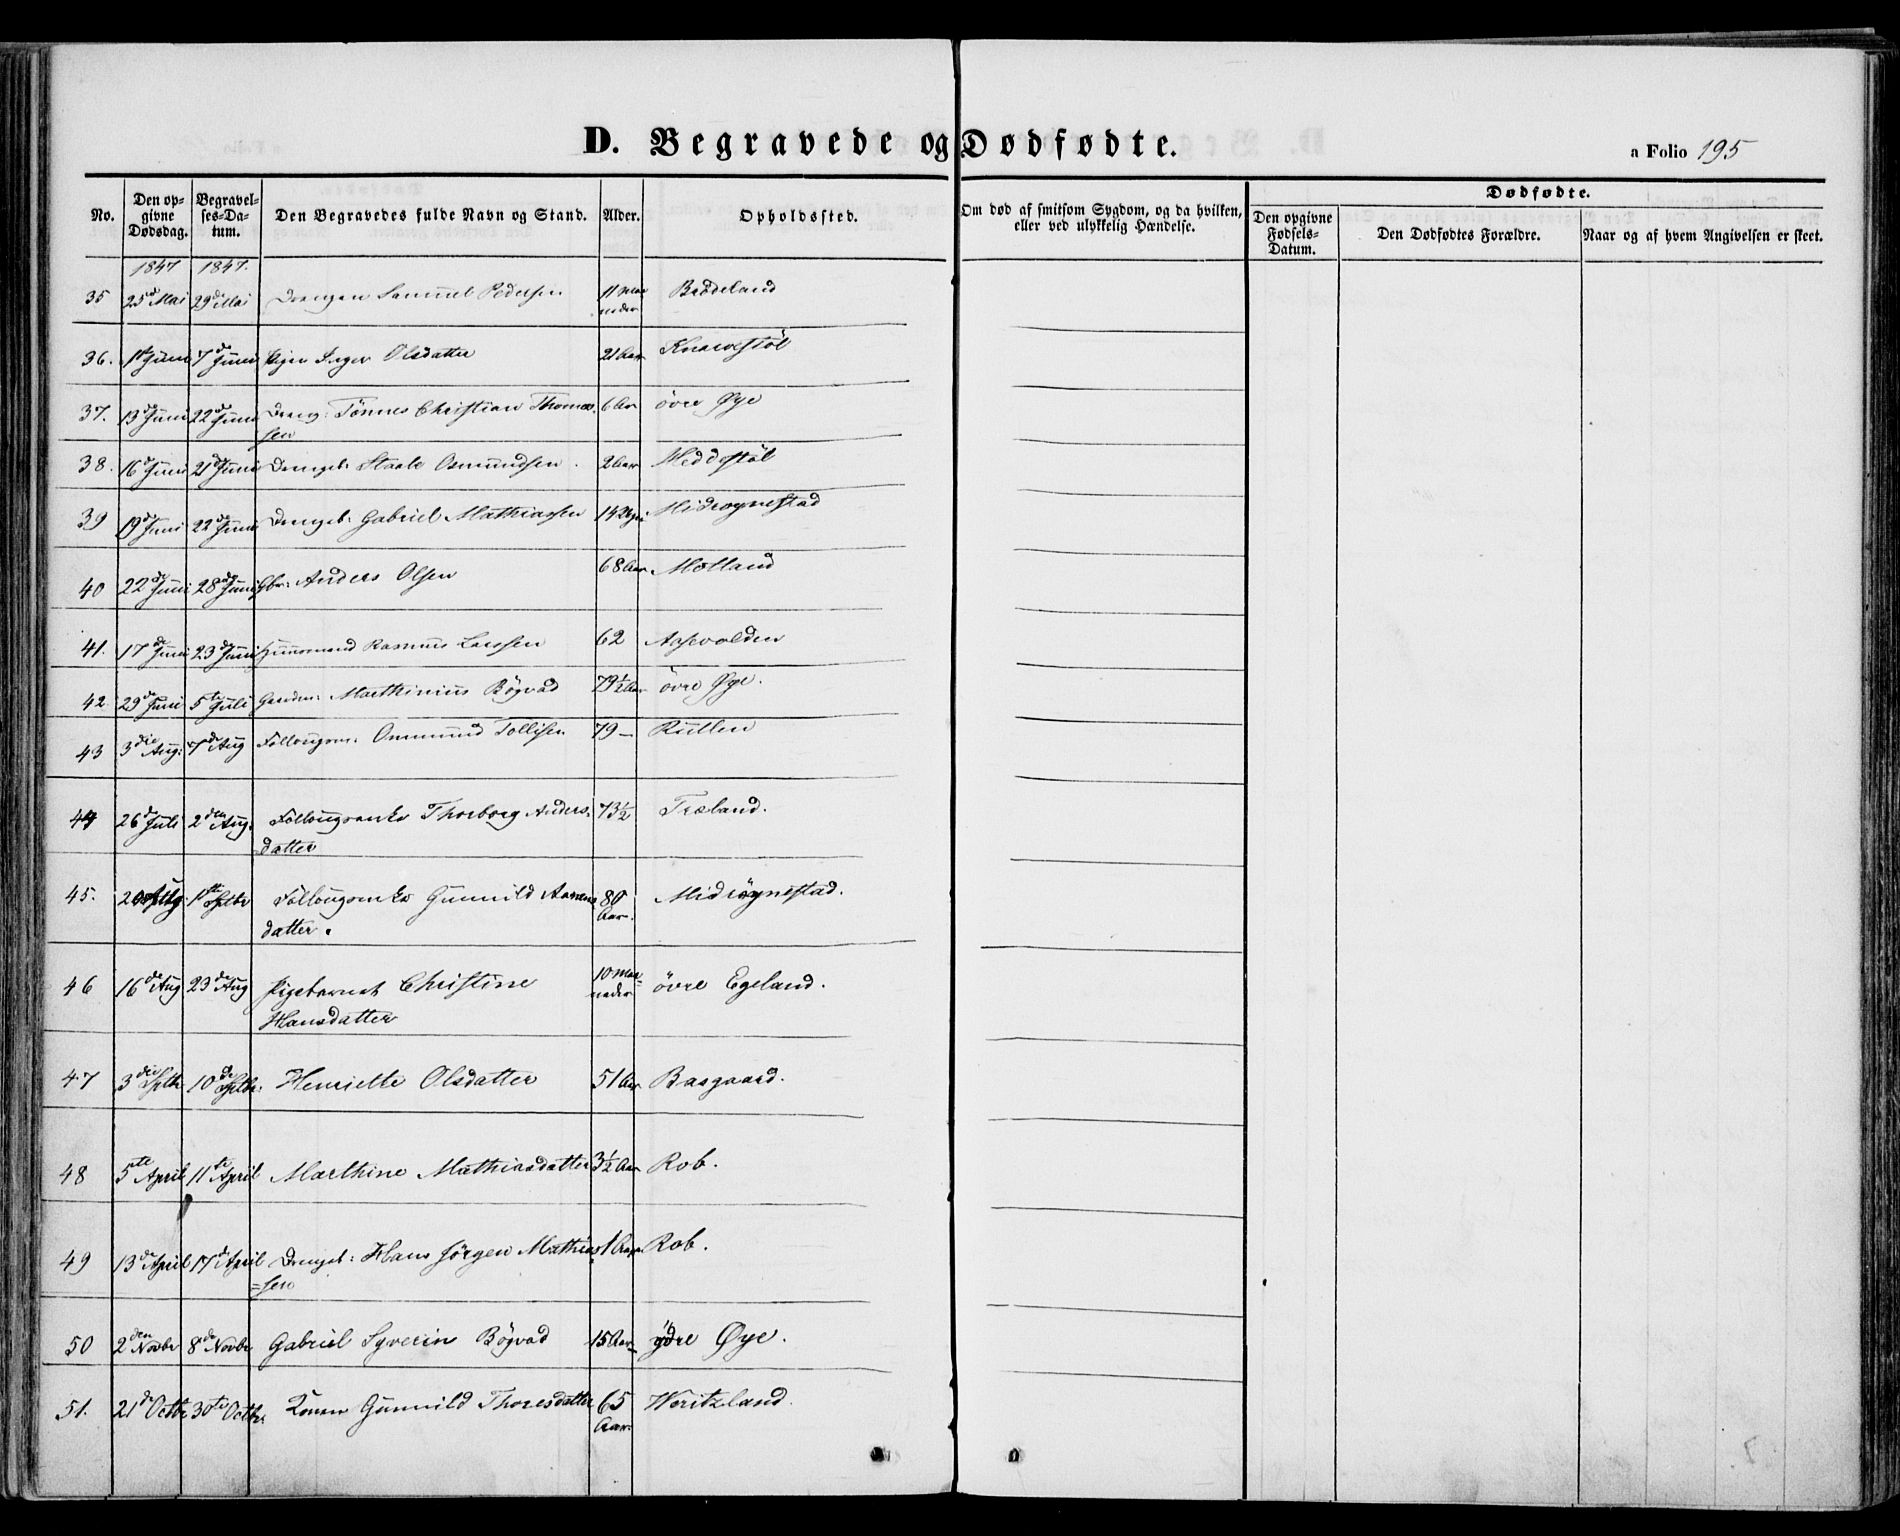 D. Begravede og Dødfødte.
a Folio 195
Dødfødte.
No. Den opgivne Dødsdag. Begravelses-Datum. Den Begravedes fulde Navn og Stand. Alder. Opholdssted. Om død af smitsom Sygdom, og da hvilken, eller ved ulykkelig Hændelse. Den opgivne Fødsels-Datum. Den Dødfødtes Forældre. Naar og af hvem Angivelsen er skeet.
1847 1847.
35 25d Mai 29de Mai Drengen Samuel Pedersen 11 Maa Bradeland
neder
36. 1st Juni 7de Juni Pigen Inger Olsdatter 21 Aar Knarvestöl
37. 13de Juni 22de Juni Dreng: Tönnes Christian Thomas 6 Aar övre Øye
sen
38. 16d Juni 21de Juni Drengeb: Staale Osmundsen. 2 Aar Meddestöl
39 19de Juni 22de Juni Drengeb: Gabriel Mathiassen 14 Uger Midrøgnestad
40 22de Juni 28de Juni Gbr: Anders Olsen 68 Aar Motland
41. 17de Juni 23d Juni Huusmand Rasmus Larssen 62 Aasevolden
42 29d Juni 5te Juli Marthinius Bögvad 79½ Aar övre Øye.
43 3die Aug: 7d Aug Föllougsm: Onsmund Tollissen 79 — Rullen
44 26d Juli 2den Aug: Föllougsenke Thorborg Anders 73½ Træland.
datter
45. 1ste Septbr Föllougsenke Gunnild Aanens 80 Midrögnestad.
datter. Aar.
46 16de Aug 23de Aug Pigebarnet Christine 10 Maa= övre Egeland.
Hansdatter neder
47 3die Septbr 10de Septbr: Henriette Olsdatter 51 Aar Basgaard.
48 5te April 11te April Marthine Mathiasdatter 3½ Aar Rob.
49 13de April 17d April Drengeb: Hans Jörgen Mathias 1 Aar Rob.
=sen
50 2den Novbr 8de Novbr Gabriel Syverin Bögvad 15 Aar ydre Øye.
51. 21de Octbr 30te Octbr: Konen Gunnild Thoresdatter 65 Woritzland.
Aar.